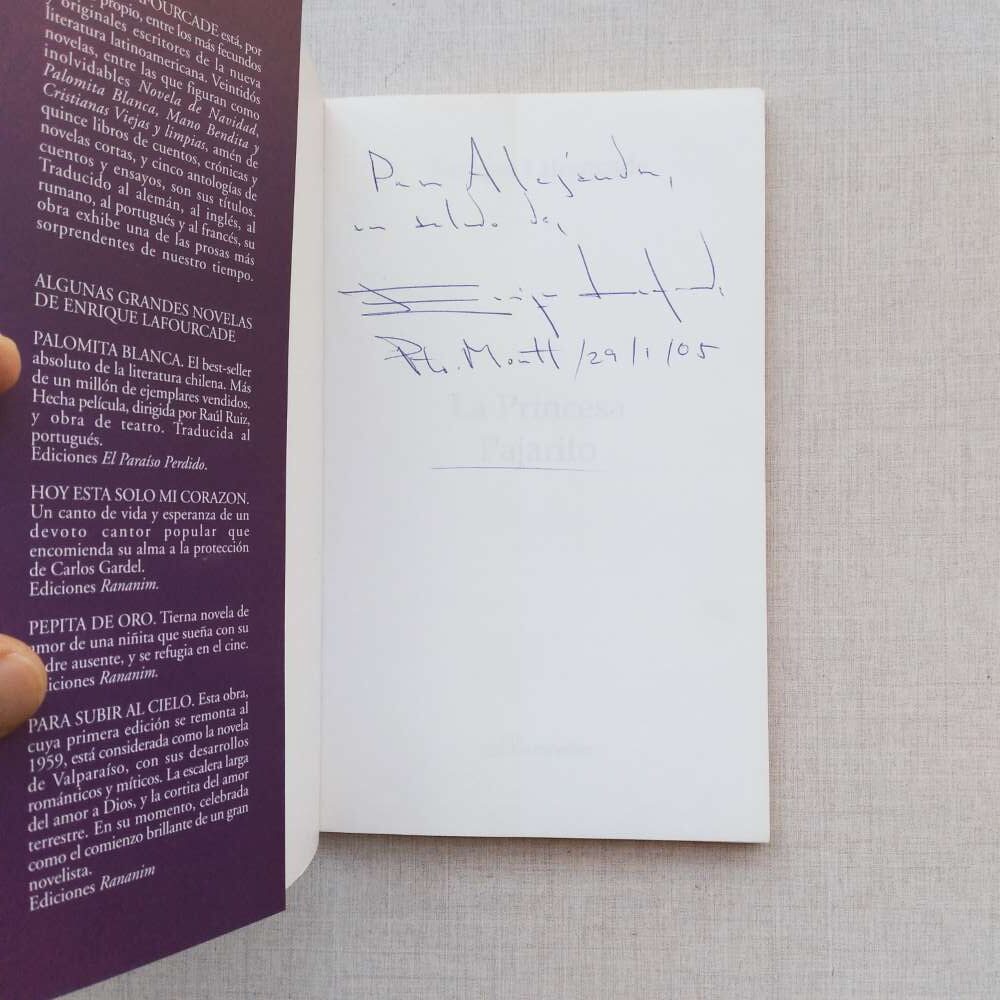 AFOURCADE está, por
propio, entre los más fecundos
y originales escritores de la nueva
literatura latinoamericana. Veintidós
novelas, entre las que figuran como
inolvidables Novela de Navidad,
Palomita Blanca, Mano Bendita y
Cristianas Viejas y limpias, amén de
quince libros de cuentos, crónicas y
novelas cortas, y cinco antologías de
cuentos y ensayos, son sus títulos.
Traducido al alemán, al inglés, al
rumano, al portugués y al francés, su
obra exhibe una de las prosas más
sorprendentes de nuestro tiempo.
ALGUNAS GRANDES NOVELAS
DE ENRIQUE LAFOURCADE
PALOMITA BLANCA. El best-seller
absoluto de la literatura chilena. Más
de un millón de ejemplares vendidos.
Hecha película, dirigida por Raúl Ruiz,
y obra de teatro. Traducida al
portugués.
Ediciones El Paraíso Perdido.
HOY ESTA SOLO MI CORAZON.
Un canto de vida y esperanza de un
devoto cantor popular que
encomienda su alma a la protección
de Carlos Gardel.
Ediciones Rananim.
PEPITA DE ORO. Tierna novela de
amor de una niñita que sueña con su
dre ausente, y se refugia en el cine.
iciones Rananim.
PARA SUBIR AL CIELO. Esta obra,
cuya primera edición se remonta al
1959, está considerada como la novela
de Valparaíso, con sus desarrollos
románticos y míticos. La escalera larga
del amor a Dios, y la cortita del amor
terrestre. En su momento, celebrada
como el comienzo brillante de un gran
novelista.
Ediciones Rananim
Para Alejandra,
un saludo de,
Enrique Lafourcade
Pto. Montt /29/1/05
La Princesa
Pajarito